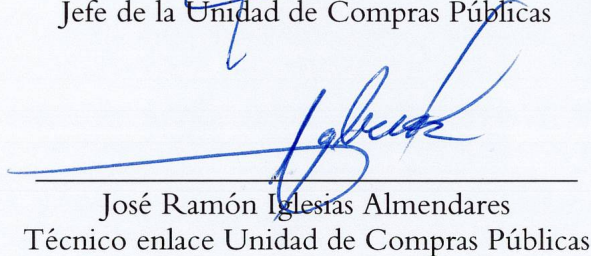 Jefe de la Unidad de Compras Públicas
José Ramón Iglesias Almendares
Técnico enlace Unidad de Compras Públicas